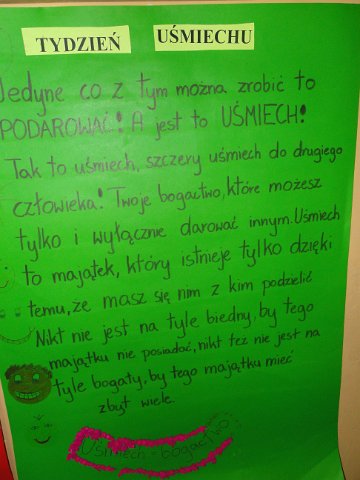 TYDZIEŃ UŚMIECHU
Jedyne co z tym można zrobić to
PODAROWAĆ! A jest to UŚMIECH!
Tak to uśmiech, szczery uśmiech do drugiego
człowieka! Twoje bogactwo, które możesz
tylko i wyłącznie darować innym. Uśmiech
to majątek, który istnieje tylko dzięki
temu, że masz się nim z kim podzielić
Nikt nie jest na tyle biedny, by tego
majątku nie posiadać, nikt też nie jest na
tyle bogaty, by tego majątku mieć
zbyt wiele.
Uśmiech - bogactwo